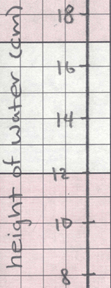 height of water (cm)
18
16
14
12
10
8